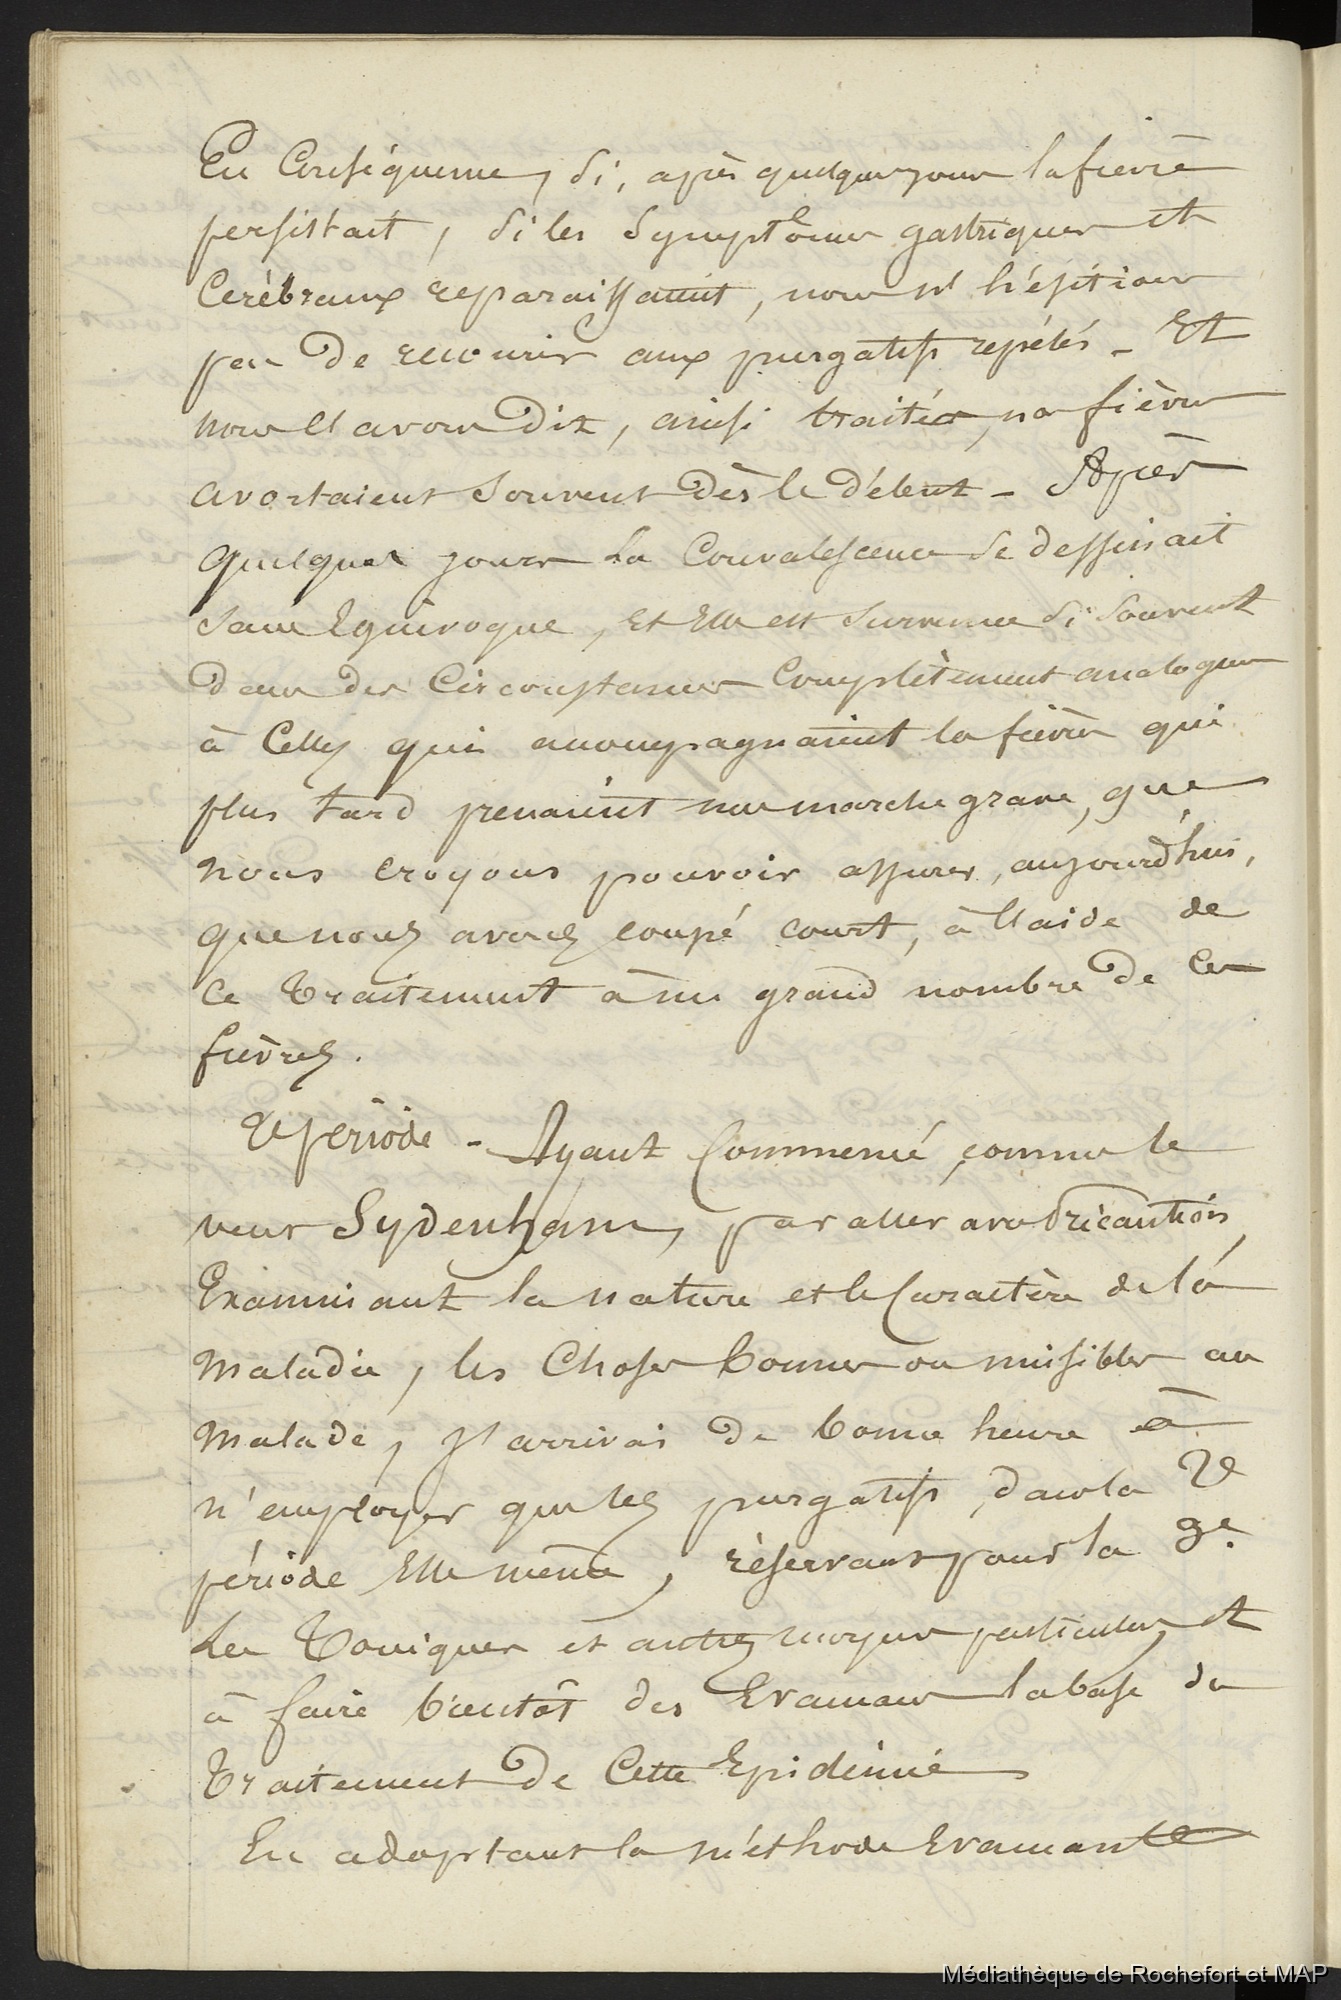 En Conséquence, si, après quelques jours la fièvre
persistait, si les symptômes gastriques et
Cerébraux reparaissaient, nous n'hésitions
pas de recourir aux purgatifs repétés - Et
nous l'avons dit, ainsi traitées, nos fièvres
avortaient souvent dès le début - Après
quelques jours la Convalescence se dessinait
sans Equivoque, et Elle est survenue si souvent
dans des Circonstances Complètement analogues
à Celles qui accompagnaient les fièvres qui
plus tard prenaient une marche grave, que
nous croyons pouvoir assurer, aujourd'hui,
que nous avons coupé court, à l'aide de
ce Traitement à un grand nombre de ces
fièvres.
2e période - Ayant Commencé, comme le
veut Sydenham, par aller avec précaution,
Examinant la nature et le Caractère de la
Maladie, les Choses bonnes ou nuisibles au
Malade, j'arrivai de bonne heure à
n'employer que les purgatifs, dans la 2e
période Elle même, réservant pour la 3e.
Les Toniques et autres moyens particuliers, et
à faire bientôt des Evacuans la base du
Traitement de Cette Epidémie
En adoptant la méthode Evacuante
Médiathèque de Rochefort et MAP